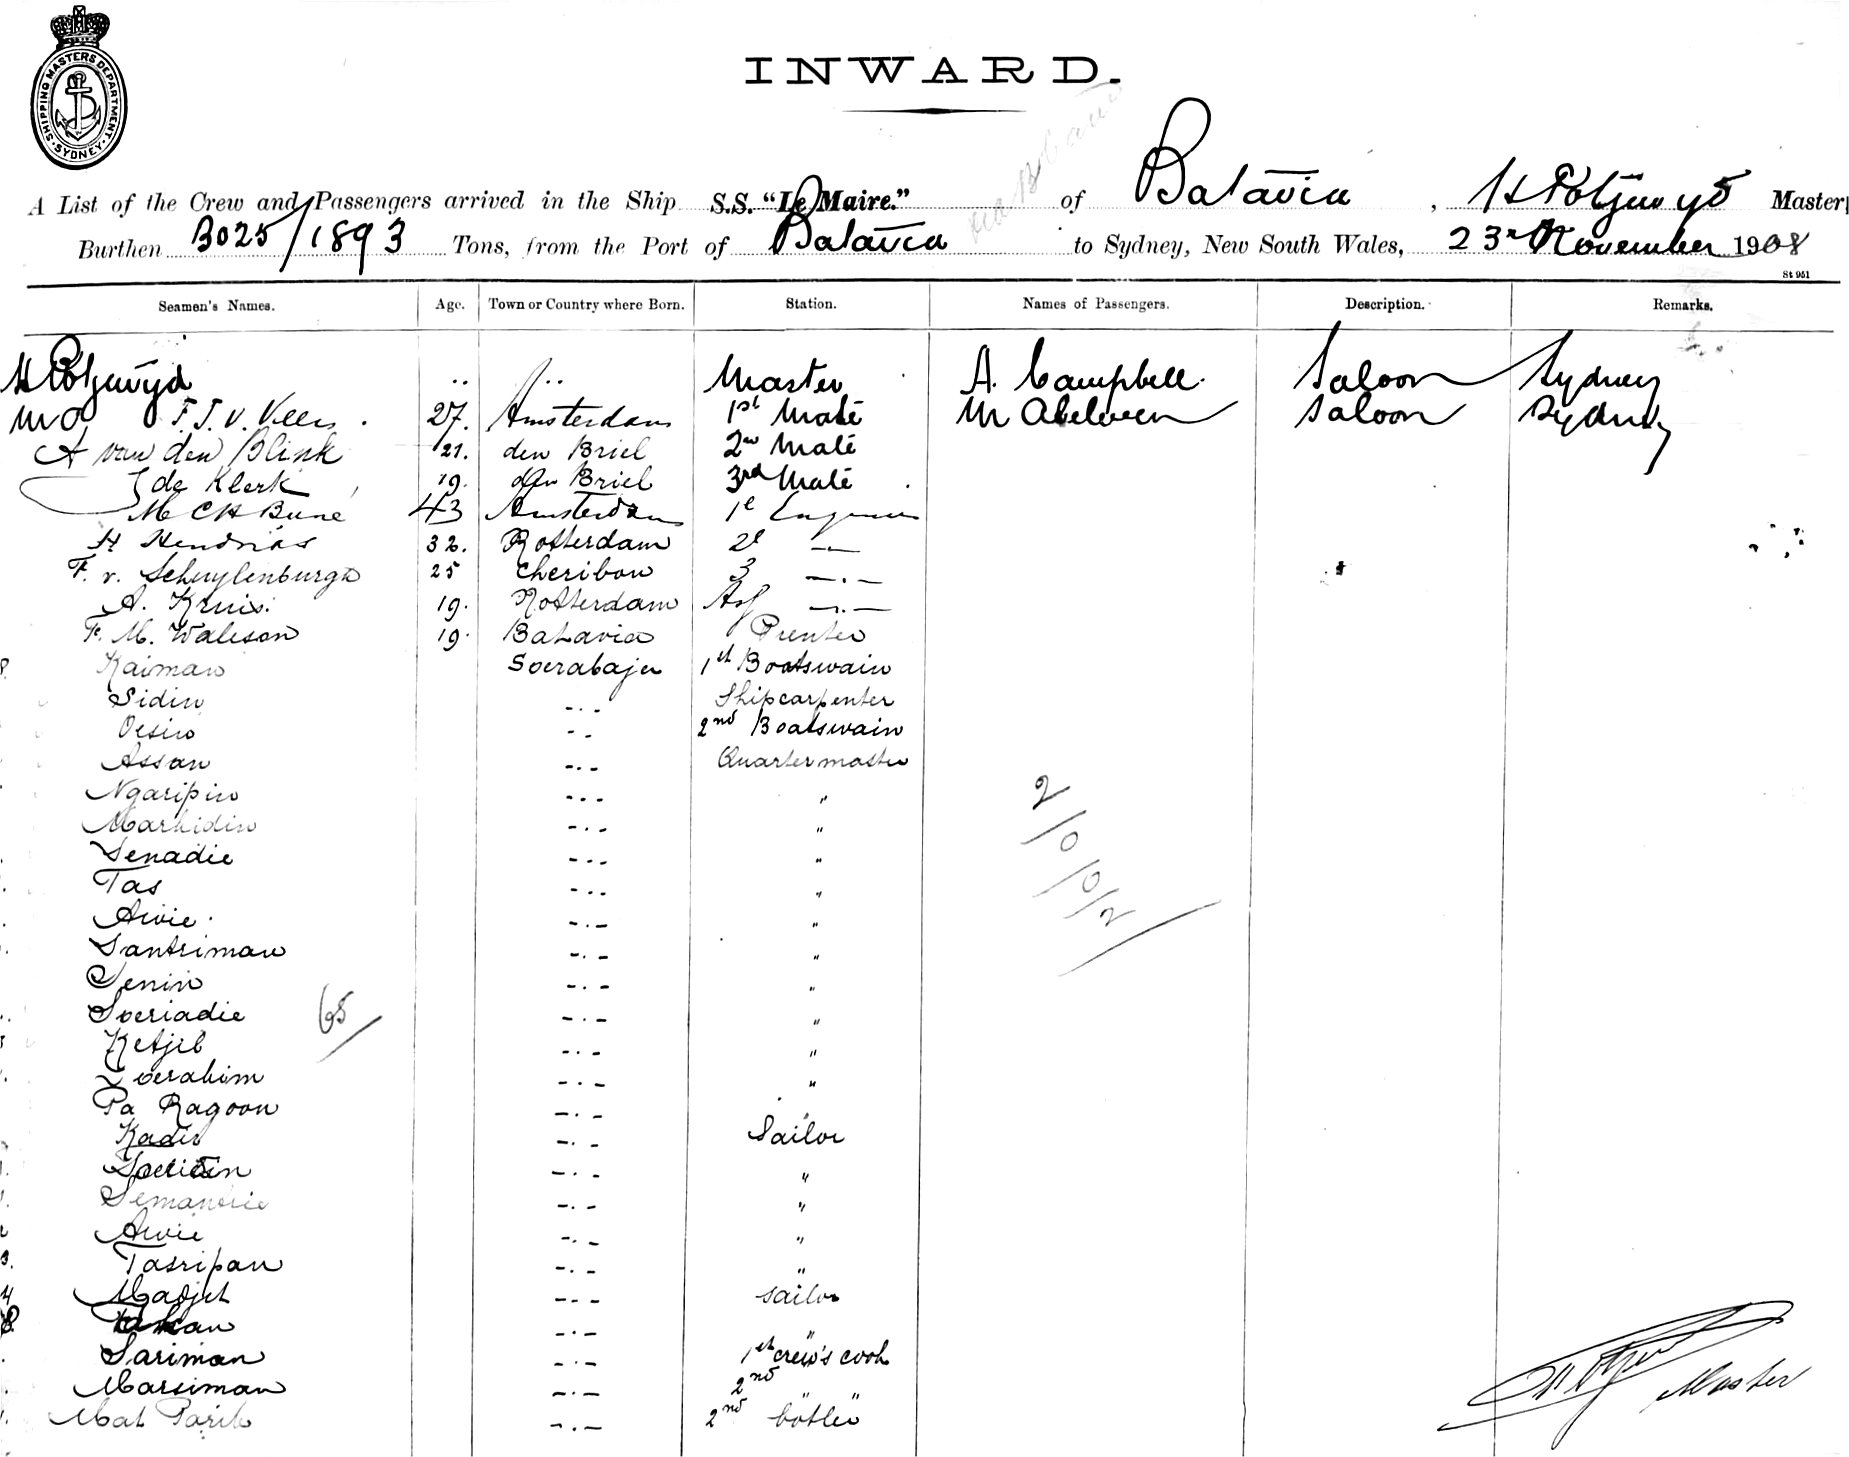 SHIPPING MASTERS DEPARTMENT SYDNEY
INWARD.
via Brisbane
A List of the Crew and Passengers arrived in the Ship S.S. "Le Maire." of Batavia, H Potjewyd Master
Burthen 3025/1893 Tons, from the Port of Batavia to Sydney, New South Wales, 23rd November 1908
St 951
Seamen's Names. Age. Town or Country where Born. Station. Names of Passengers. Description. Remarks.
H Potjewyd Master A. Campbell Saloon Sydney
F. J. v. Veen 27. Amsterdam 1st Mate M Saloon Sydney
A van den Blink 21. den Briel 2nd Mate
J de Klerk 19. den Briel 3rd Mate
M CH 43 Amsterdam 1e Engineer
H Hendriks 32. Rotterdam 2e —
F. v. Schuylenburgh 25 Cheribon 3 —.—
A. Kruis. 19. Rotterdam Ass —.—
F. M. Walison 19. Batavia
Kaiman Soerabaja 1st Boatswain
Sidin -.- Shipcarpenter
Oesin -.- 2nd Boatswain
Assan -.- Quartermaster
Ngaripin -.- "
Markidin -.- "
Senadie -.- "
Tas -.- "
Arvie -.- "
Santriman -.- "
Senin -.- "
Soeriadie 65/ -.- "
Ketjil -.- "
Soerakim -.- "
Pa Ragoon -.-
Kadir -.- Sailor
-.- "
Semandie -.- "
Arvie -.- "
Tasripan -.- "
Madjit -.- Sailor
-.- "
Sariman -.- 1st crew's cook
Marsiman -.- 2nd "
Mat -.- 2nd
2/0/0/2/
Master